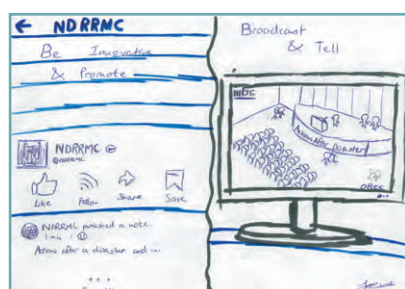 ← NDRRMC
Be Innovative
& Promote
NDRRMC
@NDRRMC
Like
Follow
Share
Save
NDRRMC published a note.
1 min
Actions after a disaster and ...
...
Broadcast
& Tell
Actions After Disaster